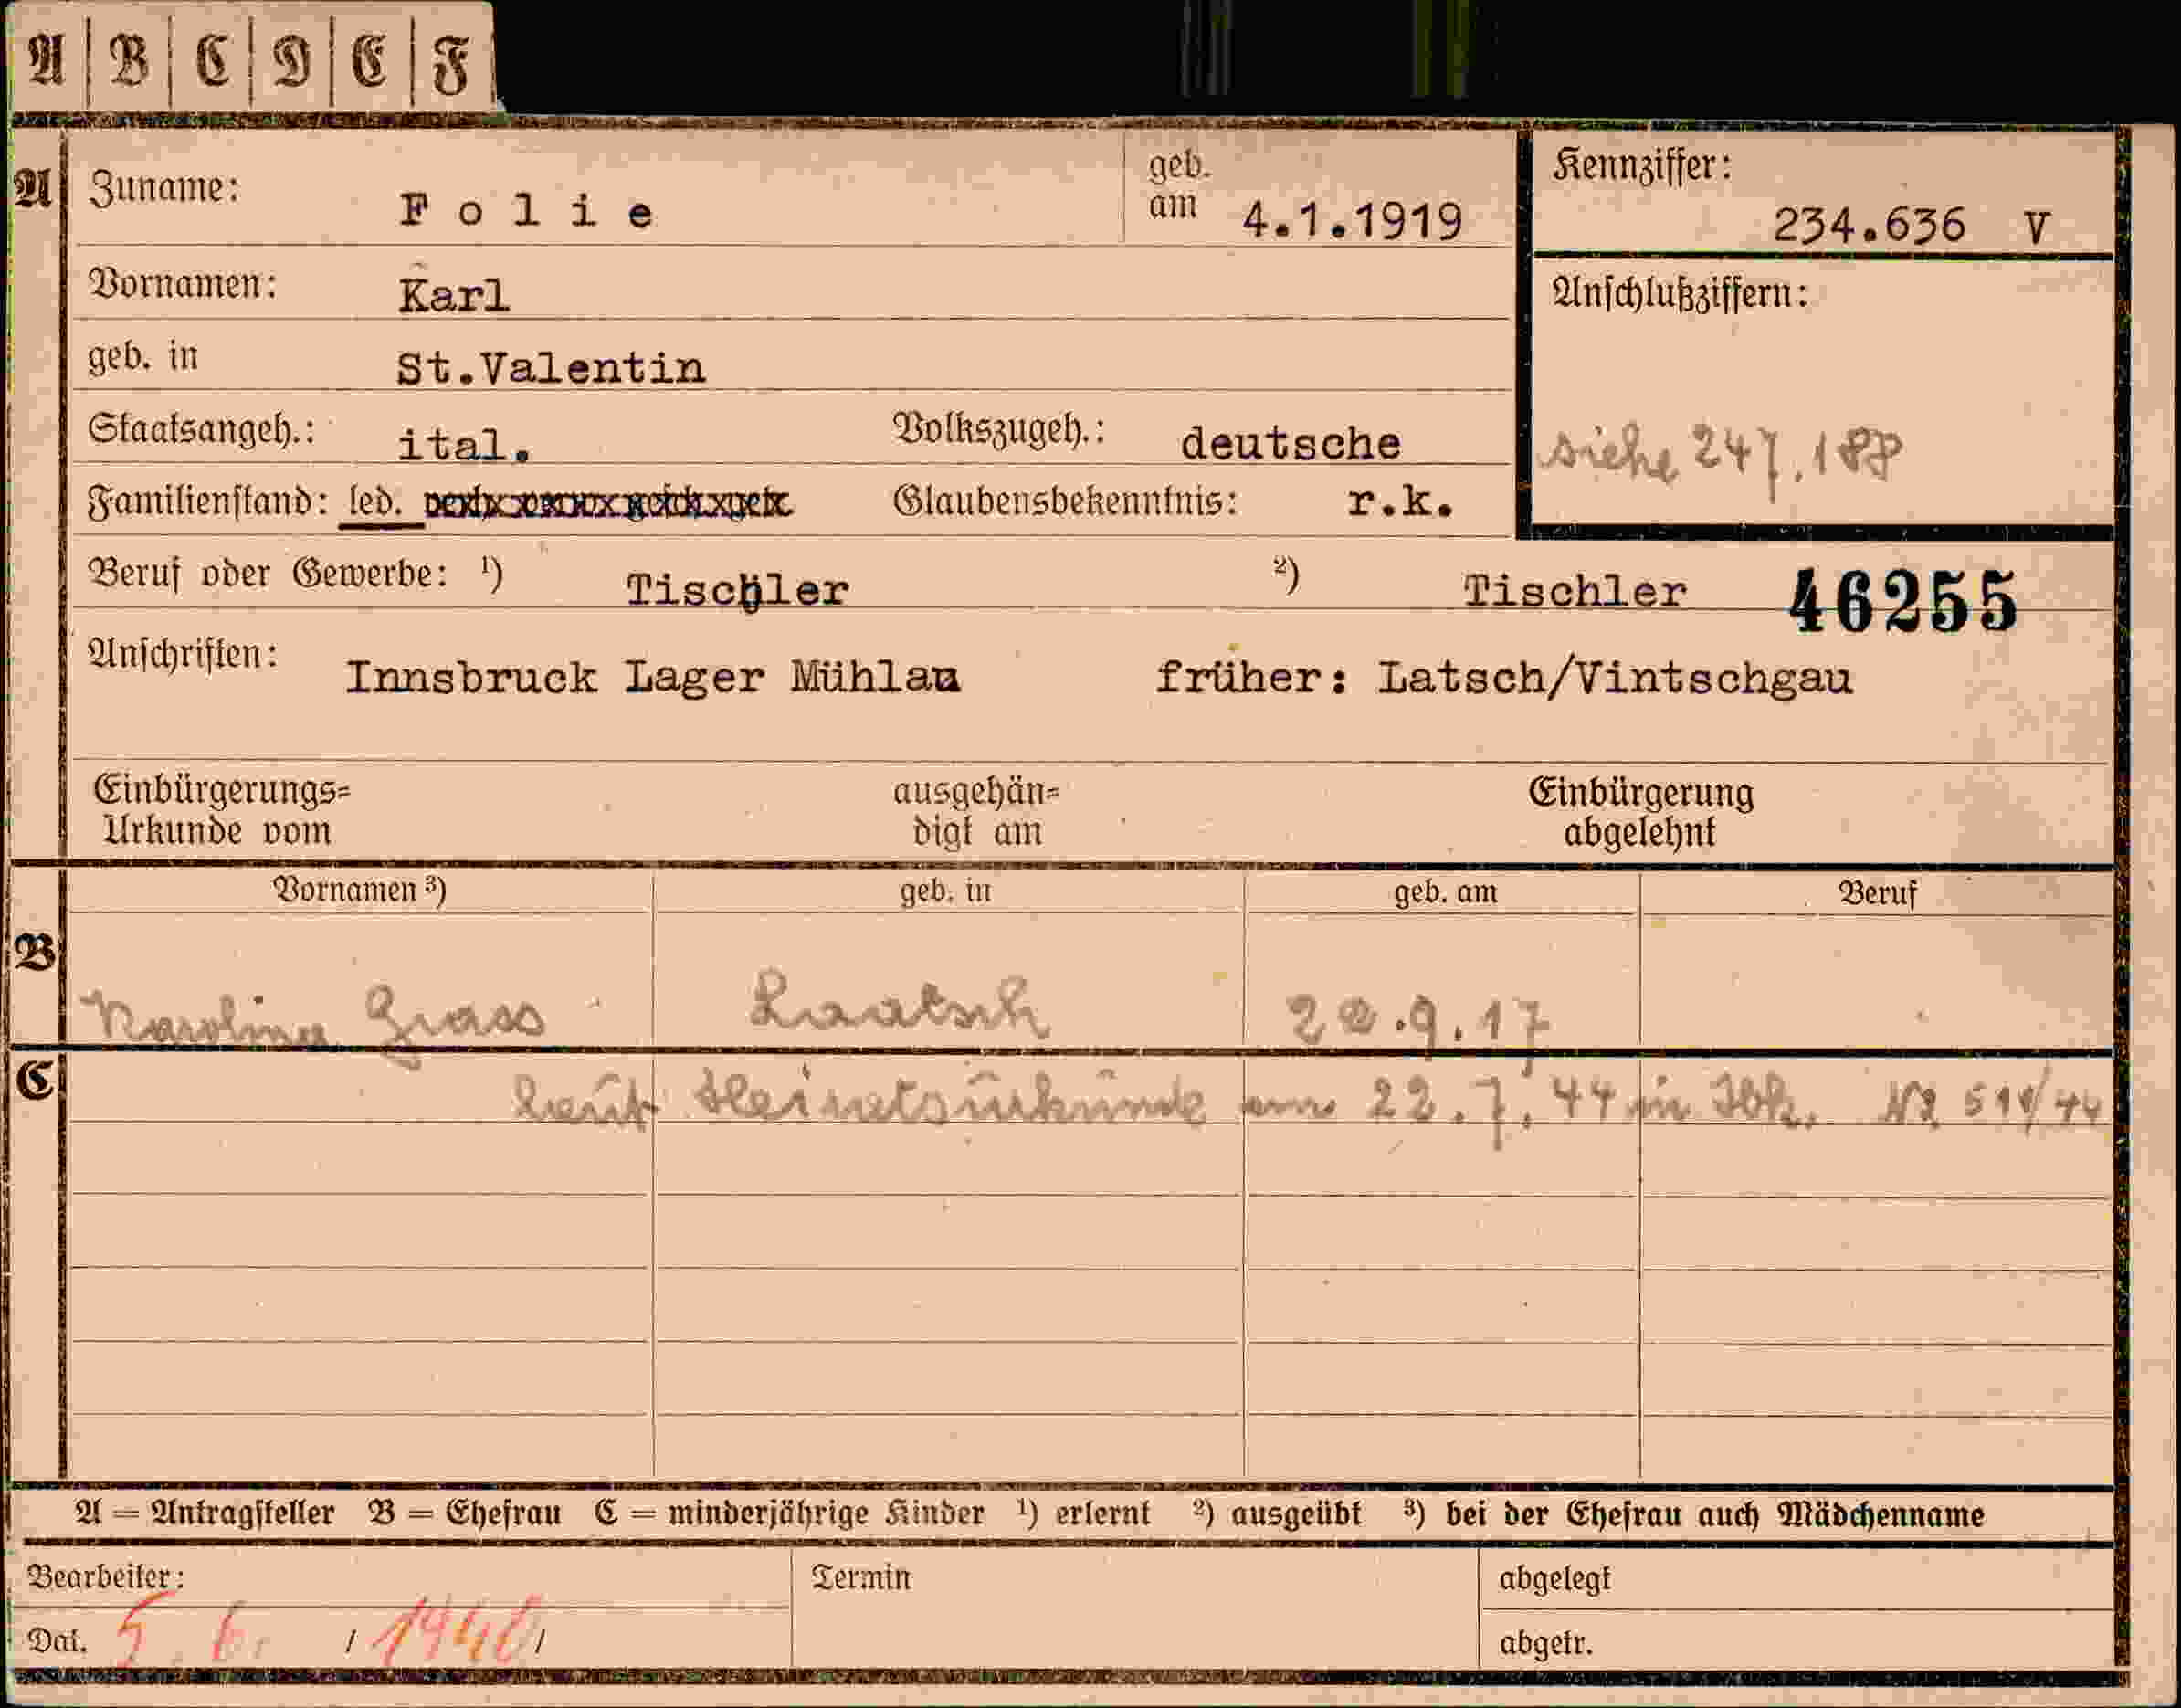 A B C D E F
A Zuname: Folie geb. am 4.1.1919 Kennziffer: 234.636 V
Vornamen: Karl Anschlußziffern:
geb. in St.Valentin
Staatsangeh.: ital. Volkszugeh.: deutsche siehe 247.188
Familienstand: led. Glaubensbekenntnis: r.k.
Beruf oder Gewerbe: 1) Tischler 2) Tischler 46255
Anschriften: Innsbruck Lager Mühlau früher: Latsch/Vintschgau
Einbürgerungs= ausgehän= Einbürgerung
Urkunde vom digt am abgelehnt
Vornamen 3) geb. in geb. am Beruf
B Karolina Grass Laatsch .9.17
C laut Heiratsurkunde am 22.7.44 in Ibk. 44
A = Antragsteller B = Ehefrau C = minderjährige Kinder 1) erlernt 2) ausgeübt 3) bei der Ehefrau auch Mädchenname
Bearbeiter: Termin abgelegt
Dat. 5. 6. / / abgetr.